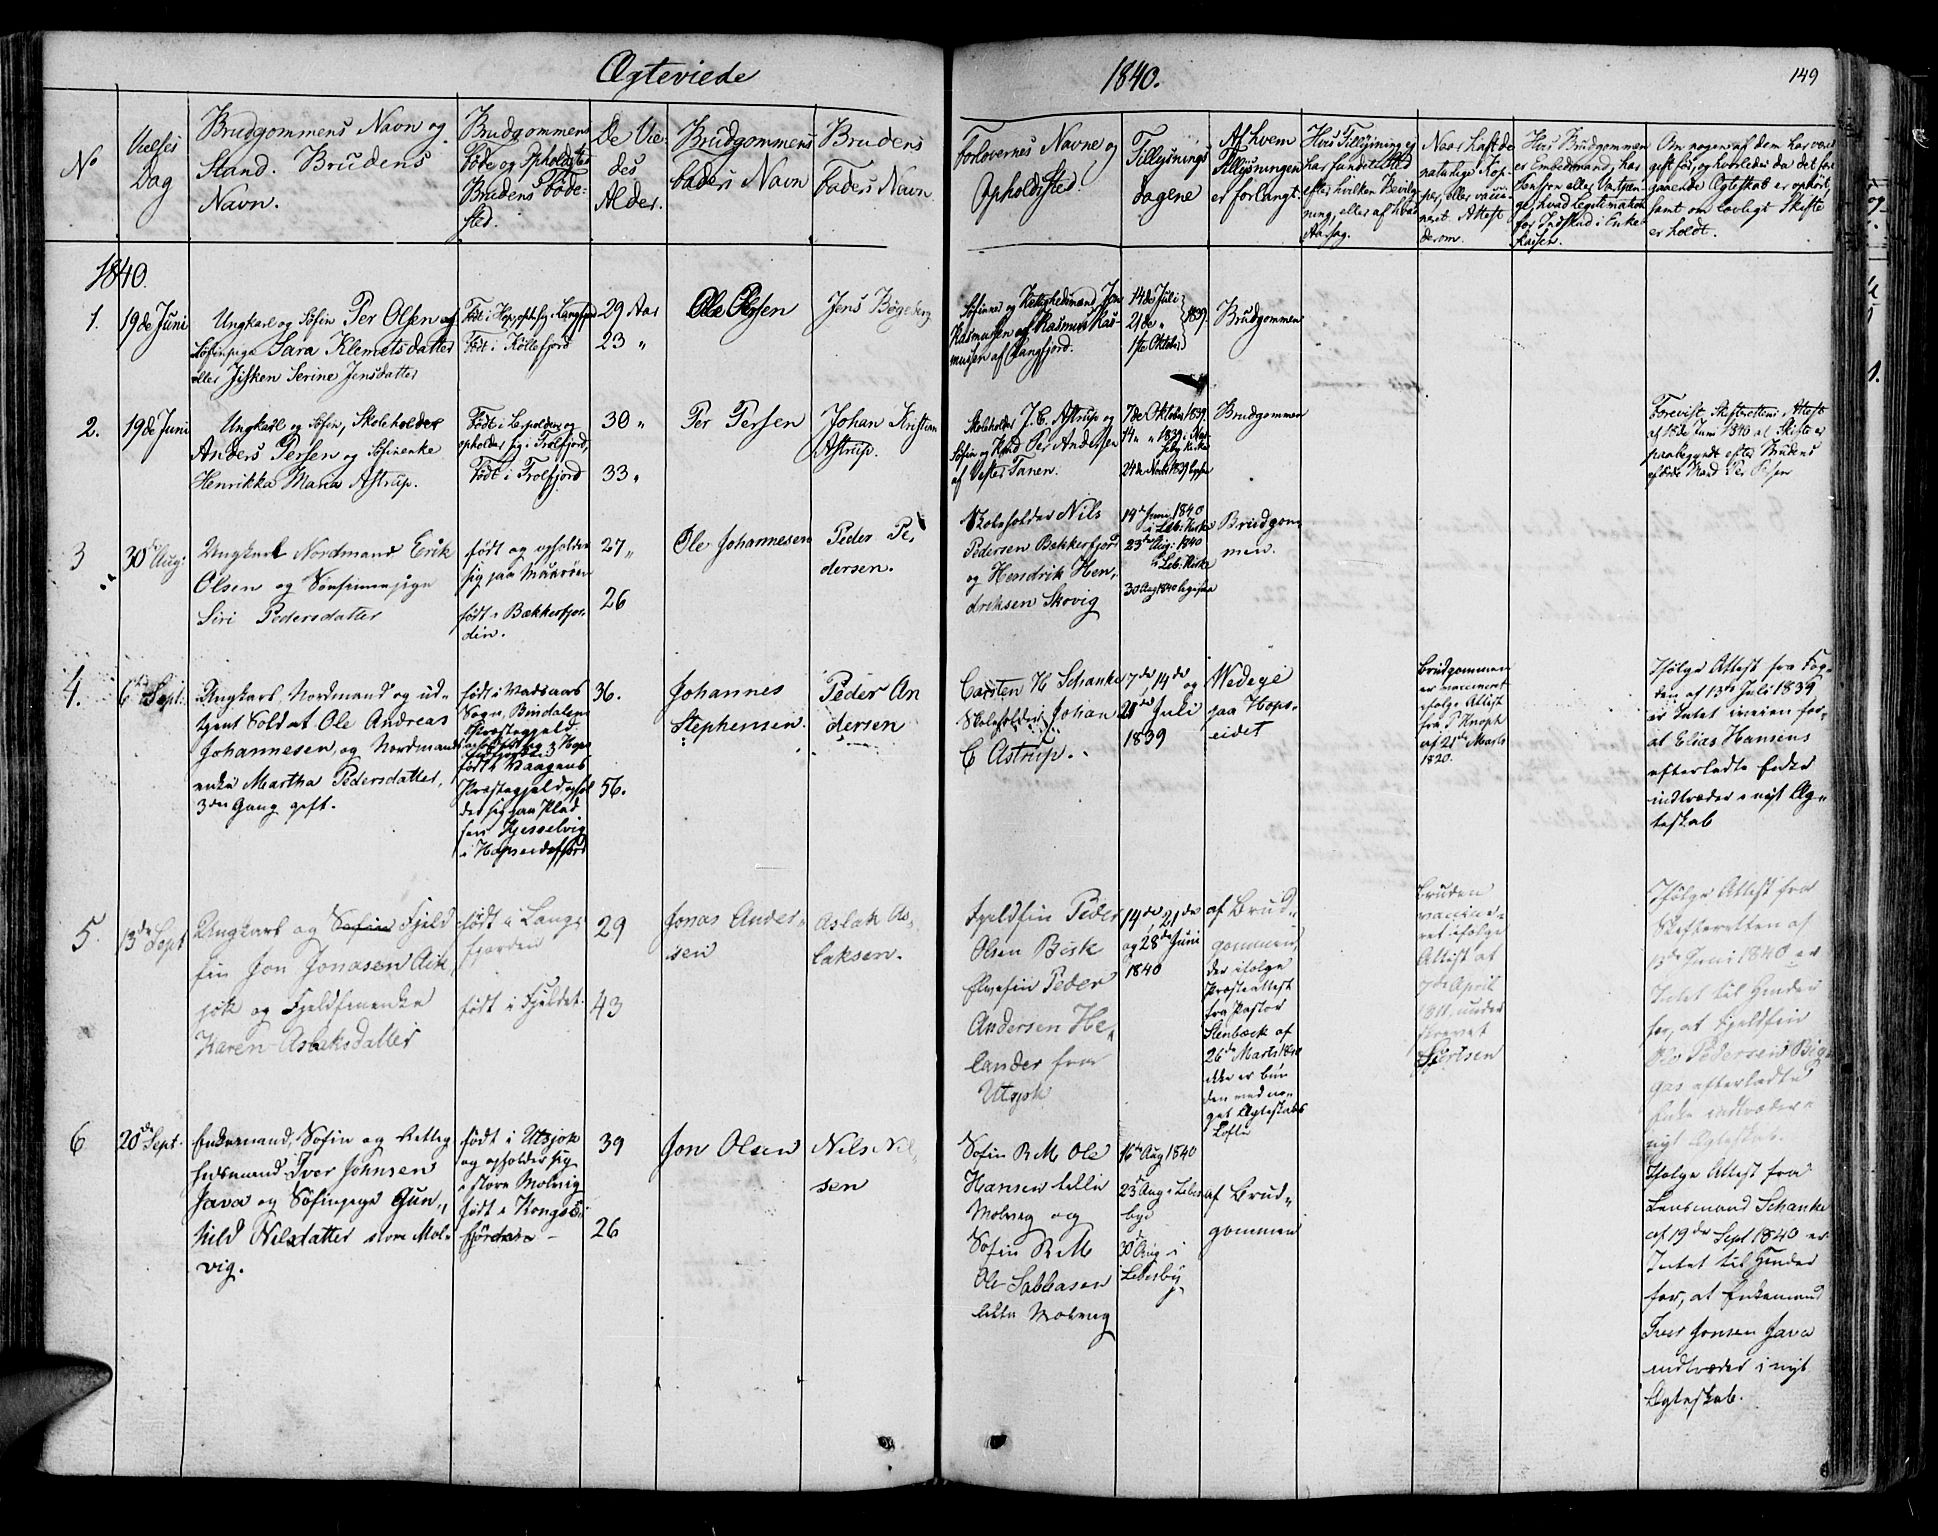 Ægteviede
1840.
149
No
Vielses
Dag
Brudgommens Navn og
Stand. Brudens
Navn.
Brudgommens
Føde og Opholdsted
Brudens Føde-
sted.
De Vie-
des
Alder.
Brudgommens
Faders Navn
Brudens
Faders Navn
Forlovernes Navne og
Opholdsted.
Tillysnings
dagene
Af hvem
Tillysningen
er forlangt.
Hvis Tillysning ej
har fundet Sted
efter hvilken Bevilg-
ning, eller af hvad
Aarsag.
Naar haft de
naturlige Kop-
per, eller vacci-
neret. Attest
derom.
Hvis Brudgommen
er Embedsmand, har
Pension eller Vartpen-
ge, hvad Legitimation
for Indskud i Enke-
kassen.
Om nogen af dem har været
gift før, og hvorledes da det fore-
gaaende Ægteskab er ophört,
samt om lovligt Skifte
er holdt.
1840.
1.
19de Juni
Ungkarl og Søfin Per Olsen og
Søfinpige Sara Klemetsdatter
eller Jisken Serine Jensdatter
Født i Kollefjord
29 Aar
23 "
Ole Olsen
Jens Bøgeberg
Rasmusen af Rasmus Ras-
musen af Langfjord.
14de Juli
21de "
1ste Oktober
1839.
Brudgommen
2.
19de Juni
Ungkarl og Søfin, Skoleholder
Anders Persen og Søfinenke
Henrikka Maria Astrup.
opholder sig i Trolfjord,
Født i Trolfjord
30 "
33 "
Per Persen
Johan Kristian
Astrup.
Skoleholder J. C. Astrup og
Søfin og Per Andersen
af Vester Tanen.
7de Oktober 1839
Brudgommen
Forevist Skifterettens Attest
af 15de Juni 1840 at Skifte er
paabegyndt efter Brudens
afdøde Mand Per Persen
3
30d Aug:
Ungkarl Nordmand Erik
Olsen og Søefinnepige
Siri Pedersdatter
født og opholder
sig paa
født i Bækkerfjor-
den.
27 "
26
Ole Johannesen
Peder Pe-
dersen.
Skoleholder Nils
Pedersen Bekkerfjord
og Hendrik Hen-
driksen Skovig
14de Juni 1840
i Leb: Kirke
23de Aug: 1840
i Leb: Kirke
30 Aug 1840
Brudgom-
men.
4.
6te Sept:
Ungkarl, Nordmand og ud-
tjent Soldat Ole Andreas
Johannesen, og Nordmands
enke Martha Pedersdatter,
3die Gang gift.
født i Vadsaas
Sogn, Bindalens
Præstegjeld
født i Vaagens
Præstegjeld ophol
der sig paa Plad
sen Kjesselvig
i Hopseidefjord
36.
56.
Johannes
Stephensen.
Peder An
dersen
Carsten H Schanke
Skoleholder Johan
C Astrup.
7de, 14de og
21de Juli
1839
Wedege
paa Hops-
eidet
Brudgommen
er vaccineret
ifølge Attest
fra P. Knoph
af 21de Marts
1820.
Ifølge Attest fra Fog-
den af 13de Juli 1839
er Intet iveien for,
at Elias Hansens
efterladte Enke
indtræder i nyt Æg-
teskab
5.
13de Sept
Ungkarl og Fjeld
fin Jon Jonasen Aik
jok og Fjeldfinenke
Karen Aslaksdatter
født i Lang-
fjorden
født i Fjeldet.
29
43
Jonas Ander-
sen
Aslak As-
laksen.
Fjeldfin Peder
Olsen Beisk
Elvefin Peder
Andersen He-
lander fra
Utsjok
14de, 21de
og 28de Juni
1840
af Brud-
gommen,
der ifølge
Præsteattest
fra Pastor
Stenbæck af
26de Marts 1840
ikke er bun
den ved no-
get Ægteskabs
Løfte
Bruden
vaccine-
ret ifølge
Attest af
7de April
1811, under
skrevet
Ifølge Attest fra
Skifteretten af
13de Juni 1840 er
Intet til Hinder
for, at Fjeldfin
Ole Pedersen Big
gas efterladte
Enke indtræder i
nyt Ægteskab.
6
20de Sept.
Enkemand, Søfin og Retlig
hedsmand Iver Johnsen
Java og Søfinpige Gun-
hild Nilsdatter store Mol-
vig.
født i Utsjok
og opholder sig
i store Molvig
født i Kongs
fjorden
39
26
Jon Olsen
Nils Nil-
sen
Søfin R.M. Ole
Hansen lille
Molvig og
Søfin R.M.
Ole Sabbasen
lille Molvig
16de Aug 1840
23d Aug i Lebes
bye
30d Aug i
Lebesby
af Brud-
gommen
Ifølge Attest fra
Lensmand Schanke
af 19de Sept 1840 er
Intet til Hinder
for, at Enkemand
Iver Jonsen Java
indtræder i nyt
Ægteskab.